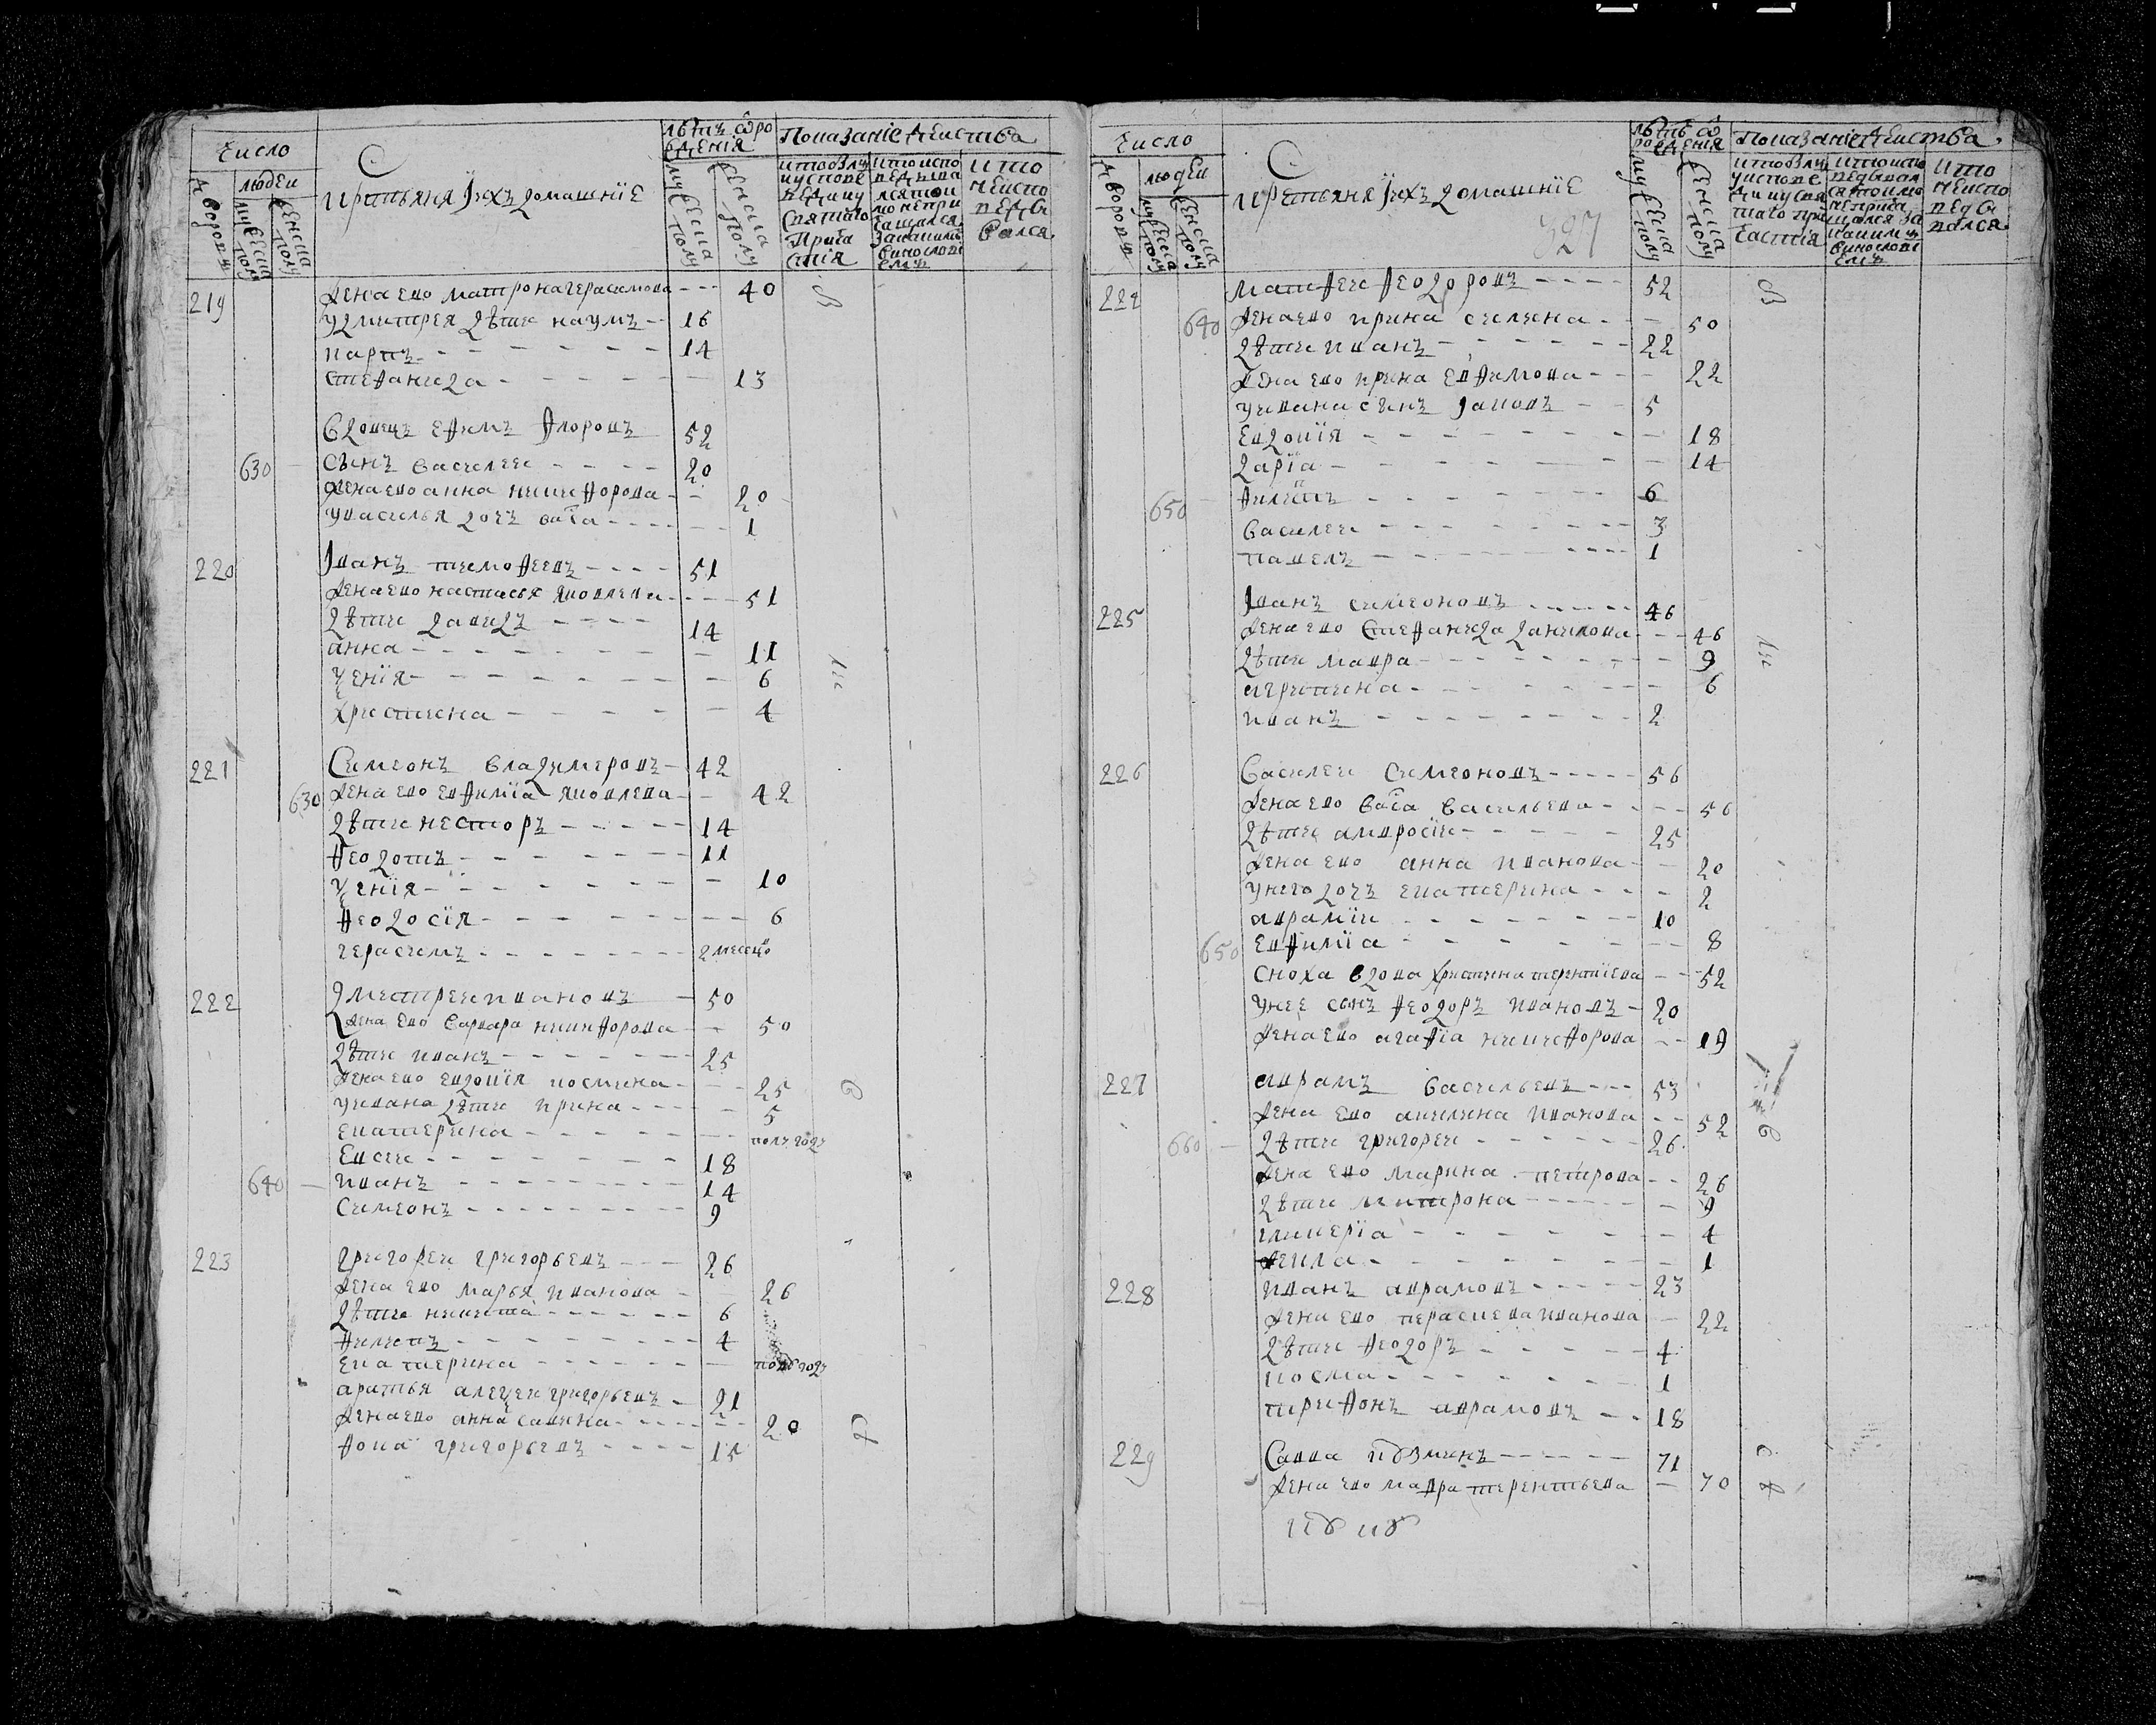 Число
дворовъ
людеи
мужеска полу
женска полу
Крстьяня ихъ домашнïе
лѣтъ ѿ рождения
мужеска полу
женска полу
Показанïе действа
кто былъ у исповеди и у святаго причастïя
кто исповедывался токмо не причащался за какимъ винословïемъ
кто не исповедывался
219 жена ево матрона герасимова --- 40
у дмитрея дѣти наумъ - 16
карпъ - - - 14
стефанида - - - 13
вдовецъ ефимъ флоровъ 52
630 сынъ василеи - - - 20
жена ево анна никифорова - - 20
у василья дочъ васа - - - 1
220 Iванъ тимофеевъ - - - 51
жена ево настасья яковлева - - - 51
дѣти давидъ - - - 14
анна - - - 11
ѯенïя - - - 6
христина - - - 4
221 Симеонъ владимеровъ - 42
630 жена ево евфимïа яковлева - - 42
дѣти несторъ - - - 14
феодотъ - - - 11
ѯенïя - - - 10
феодосïя - - - 6
герасимъ - - - 2 месецов
222 дмитреи ивановъ - 50
жена ево варвара никифорова - - 50
дѣти иванъ - - - 25
жена ево евдокïя космина - - - 25
у ивана дѣти ирина - - - 5
екатерина - - - полъ годъ
Евсеи - - - 18
640 иванъ - - - 14
Симеонъ - - - 9
223 григореи григорьевъ - - - 26
жена ево марья иванова - - 26
дѣти никита - - - 6
филипъ - - - 4
екатерина - - - полъ годъ
братья алеѯеи григорьевъ - 21
жена ево анна савина - - - 20
фока григорьевъ - - - 15
Число
дворовъ
людеи
мужеска полу
женска полу
Крстьяня ихъ домашнïе
327
лѣтъ ѿ рождения
мужеска полу
женска полу
Показанïе действа.
224 матфеи феодоровъ - - - 52
640 жена ево ирина силина - - - 50
дѣти иванъ - - - 22
жена ево ирина евфимова - - - 22
у ивана синъ Iаковъ - - 5
евдокïя - - - 18
дарïа - - - 14
650 филипъ - - - 6
василеи - - - 3
павелъ - - - 1
225 Iванъ симеоновъ - - - 46
жена ево стефанида данилова - - - 46
дѣти мавра - - - 9
агрипина - - - 6
иванъ - - - 2
226 Василеи Симеоновъ - - - 56
жена ево васа васильева - - - 56
дѣти амвросïи - - - 25
жена ево анна иванова - - 20
у него дочъ екатерина - - - 2
аврамïи - - - 10
650 евфимïа - - - 8
сноха вдова христина терентïева - - - 52
у нее сынъ феодоръ ивановъ - 20
жена ево агафïа никифорова - - 19
227 аврамъ васильевъ - - - 53
жена ево акилина иванова - - 52
660 дѣти григореи - - - 26
жена ево марина петрова - - 26
дѣти митрона - - - 9
гликерïа - - - 4
фекла - - - 1
228 иванъ аврамовъ - - - 23
жена ево параскева иванова - 22
дѣти феодоръ - - - 4
косма - - - 1
трифонъ аврамовъ - - 18
229 Савва козминъ - - - 71
жена ево мавра терентьева - 70